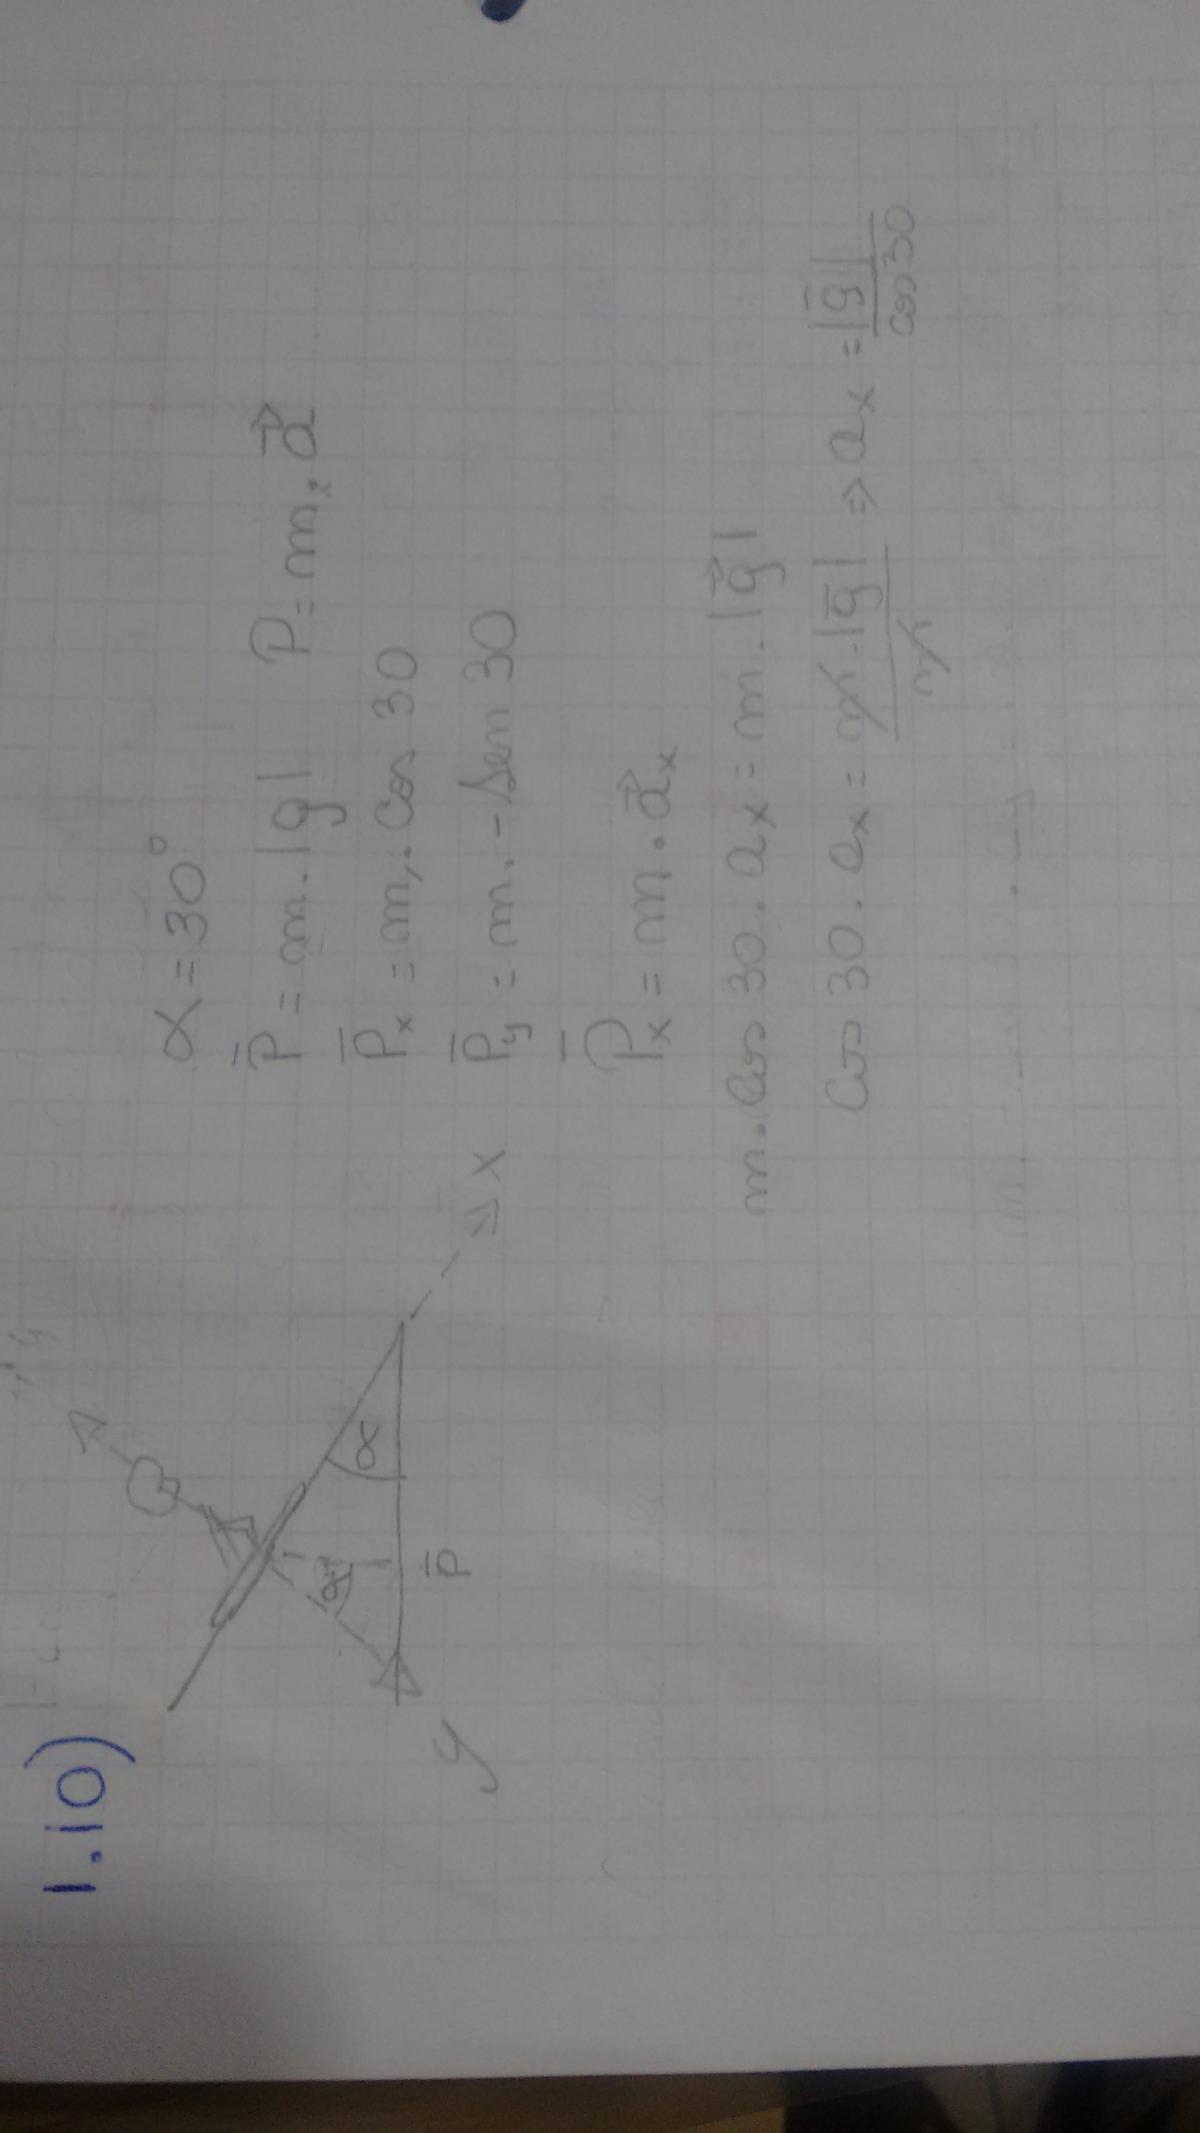 1.10)
α = 30°
P̄ = m . |g| P = m . a⃗
P̄x = m . cos 30
P̄y = m . - sen 30
P̄x = m . a⃗x
m . cos 30 . ax = m . |g⃗|
cos 30 . ax = m . |ḡ| / m ⇒ ax = |ḡ| / cos 30
x
α
α
P̄
y